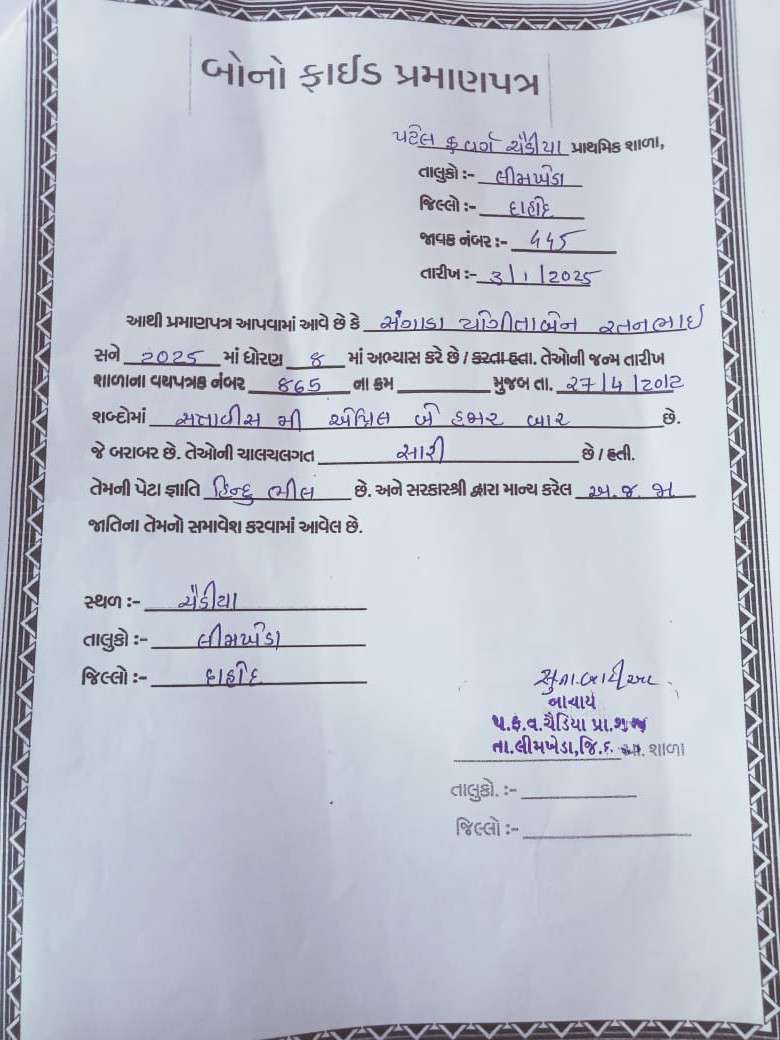 બોનો ફાઈડ પ્રમાણપત્ર
પટેલ ફ વર્ગ ચૈડીયા પ્રાથમિક શાળા,
તાલુકો :- લીમખેડા
જિલ્લો :- દાહોદ
જાવક નંબર :- ૪૪૫
તારીખ :- 3/1/2025
આથી પ્રમાણપત્ર આપવામાં આવે છે કે સંગાડા યોગીતાબેન રતનભાઈ
સને 2025 માં ધોરણ 8 માં અભ્યાસ કરે છે / કરતા હતા. તેઓની જન્મ તારીખ
શાળાના વયપત્રક નંબર 865 ના ક્રમ મુજબ તા. 27/4/2012
શબ્દોમાં સતાવીસ મી એપ્રિલ બે હજાર બાર છે.
જે બરાબર છે. તેઓની ચાલચલગત સારી છે / હતી.
તેમની પેટા જ્ઞાતિ હિન્દુ ભીલ છે. અને સરકારશ્રી દ્વારા માન્ય કરેલ અ.જ.જા
જાતિના તેમનો સમાવેશ કરવામાં આવેલ છે.
સ્થળ :- ચૈડીયા
તાલુકો :- લીમખેડા
જિલ્લો :- દાહોદ
આચાર્ય
પ.ફ.વ.ચૈડિયા પ્રા.શાળા
તા.લીમખેડા,જિ.દ. શાળા
તાલુકો. :-
જિલ્લો :-